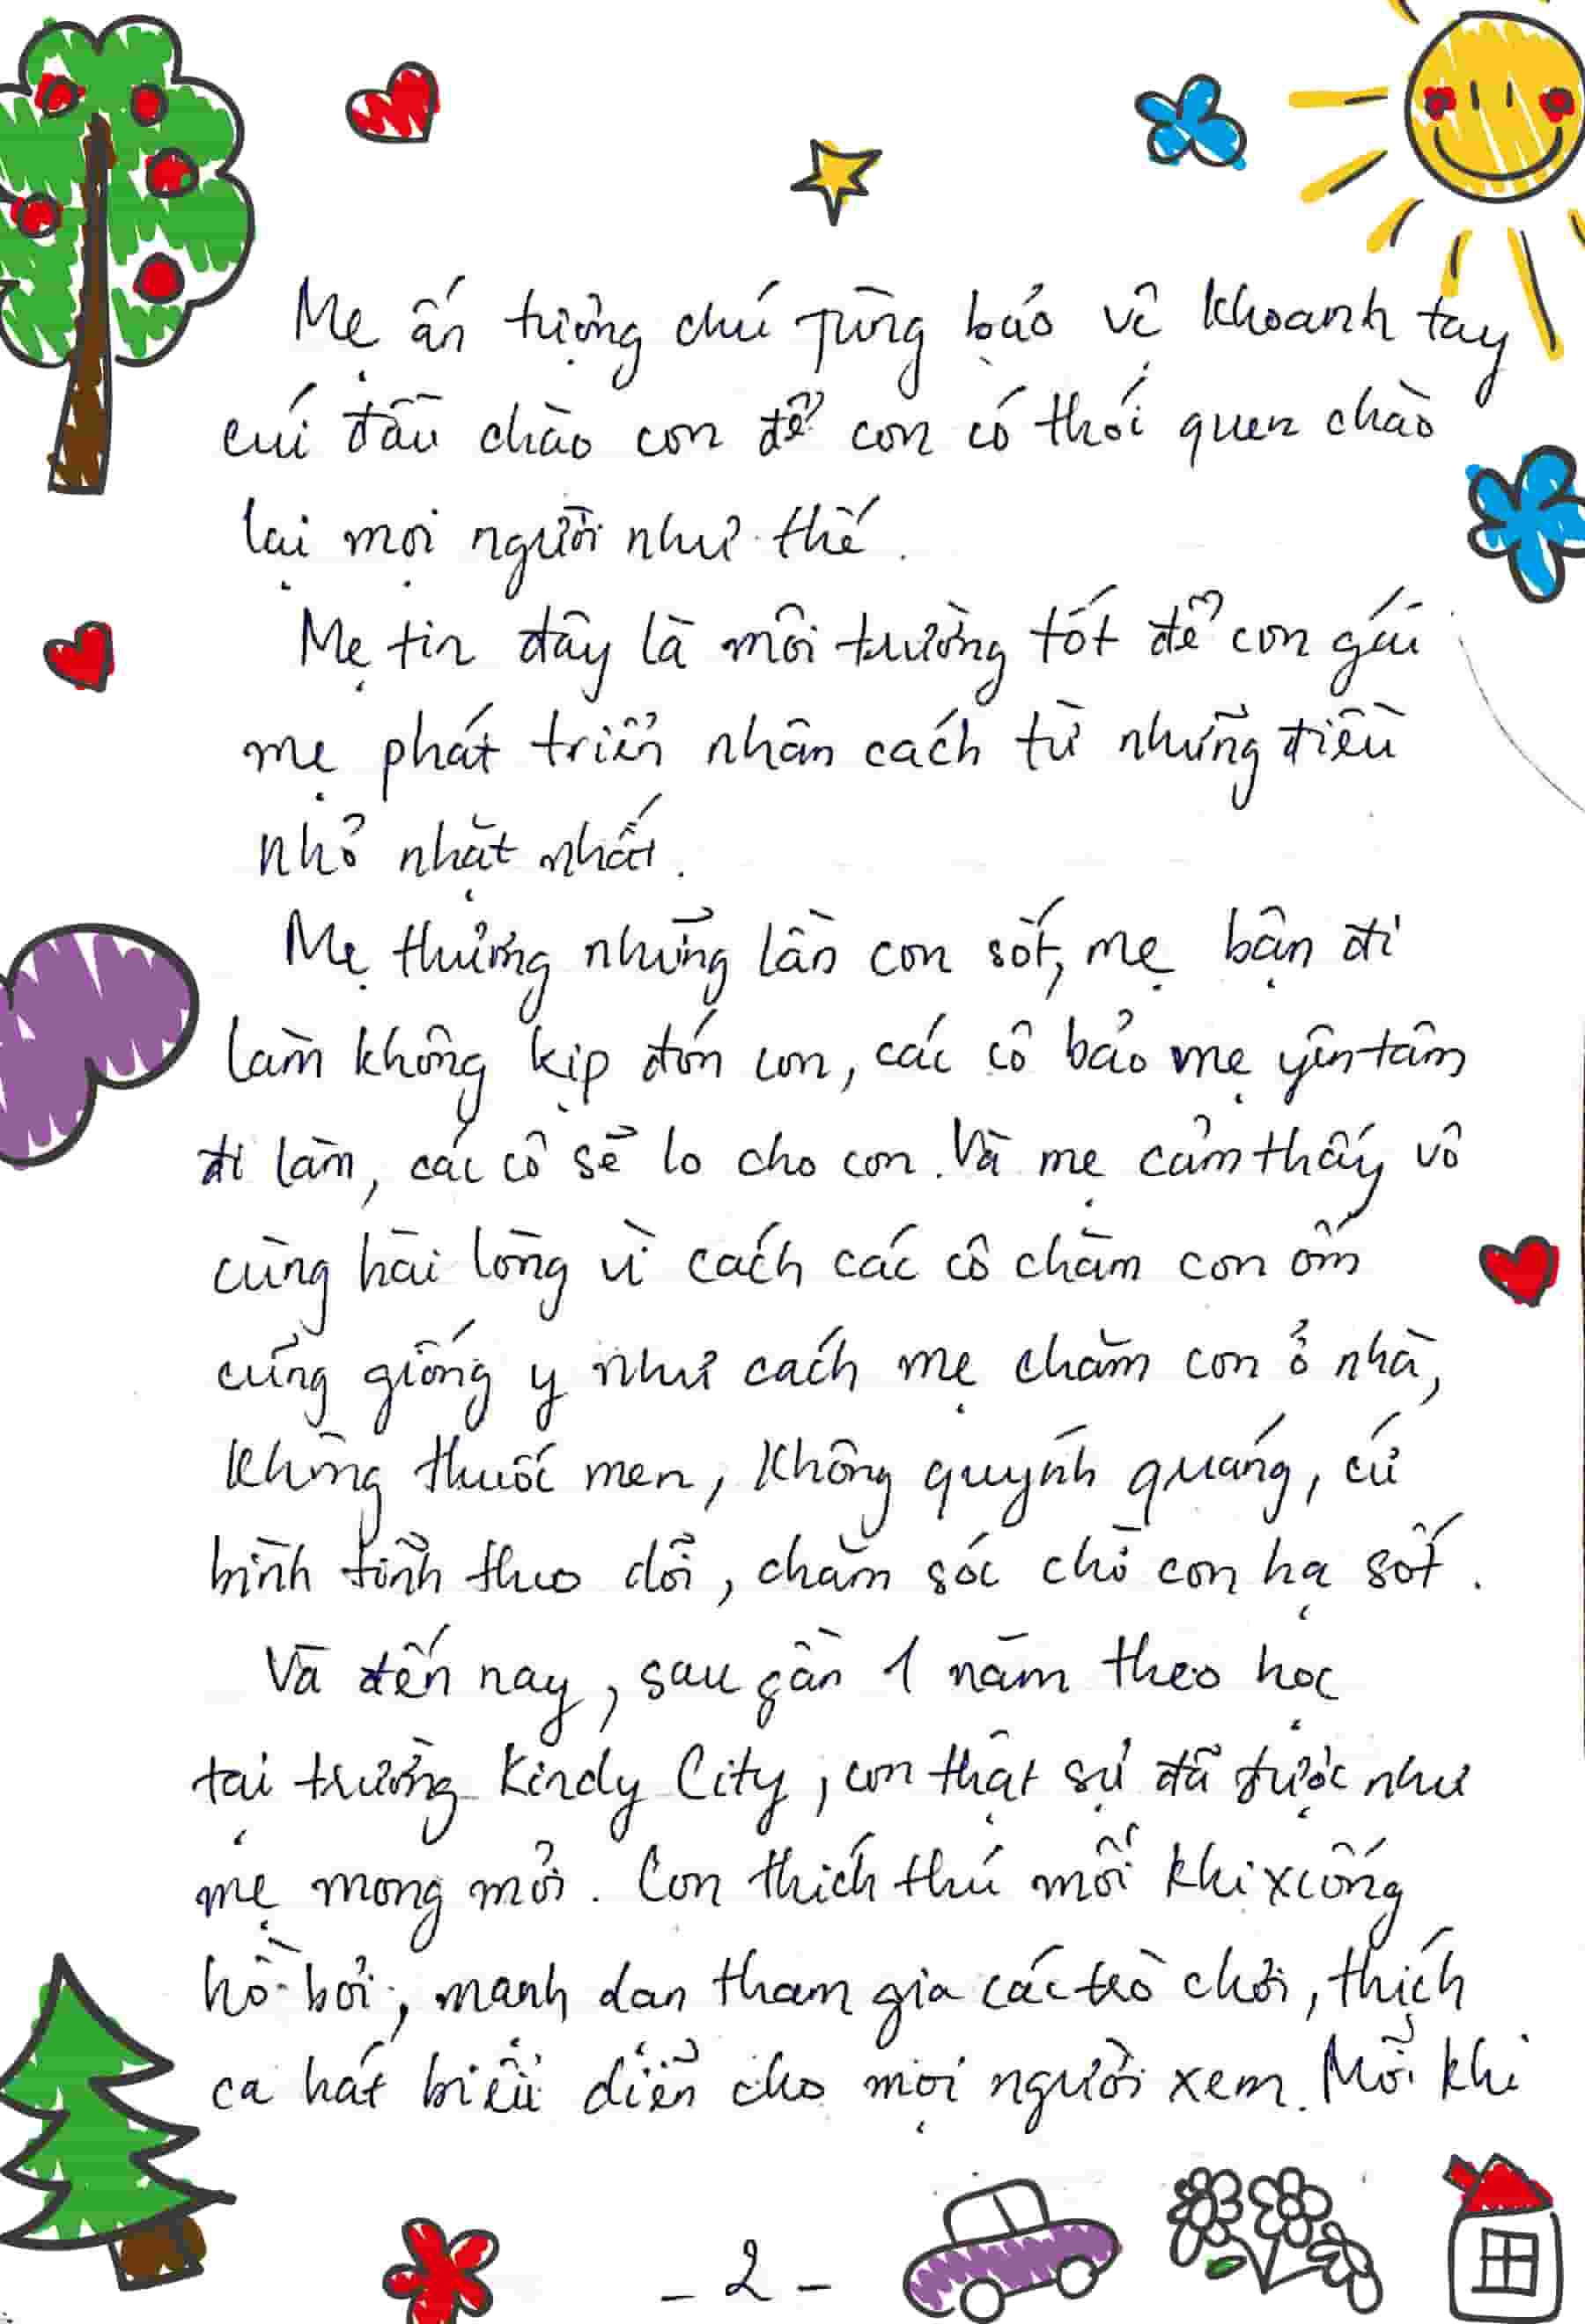 Mẹ ấn tượng chú Tùng bảo vệ khoanh tay
cúi đầu chào con để con có thói quen chào
lại mọi người như thế.
Mẹ tin đây là môi trường tốt để con gái
mẹ phát triển nhân cách từ những điều
nhỏ nhặt nhất.
Mẹ thương những lần con sốt, mẹ bận đi
làm không kịp đón con, các cô bảo mẹ yên tâm
đi làm, các cô sẽ lo cho con. Và mẹ cảm thấy vô
cùng hài lòng vì cách các cô chăm con ốm
cũng giống y như cách mẹ chăm con ở nhà,
không thuốc men, không quýnh quáng, cứ
bình tĩnh theo dõi, chăm sóc chờ con hạ sốt.
Và đến nay, sau gần 1 năm theo học
tại trường Kindy City, con thật sự đã được như
mẹ mong mỏi. Con thích thú mỗi khi xuống
hồ bơi, mạnh dạn tham gia các trò chơi, thích
ca hát biểu diễn cho mọi người xem. Mỗi khi
- 2 -